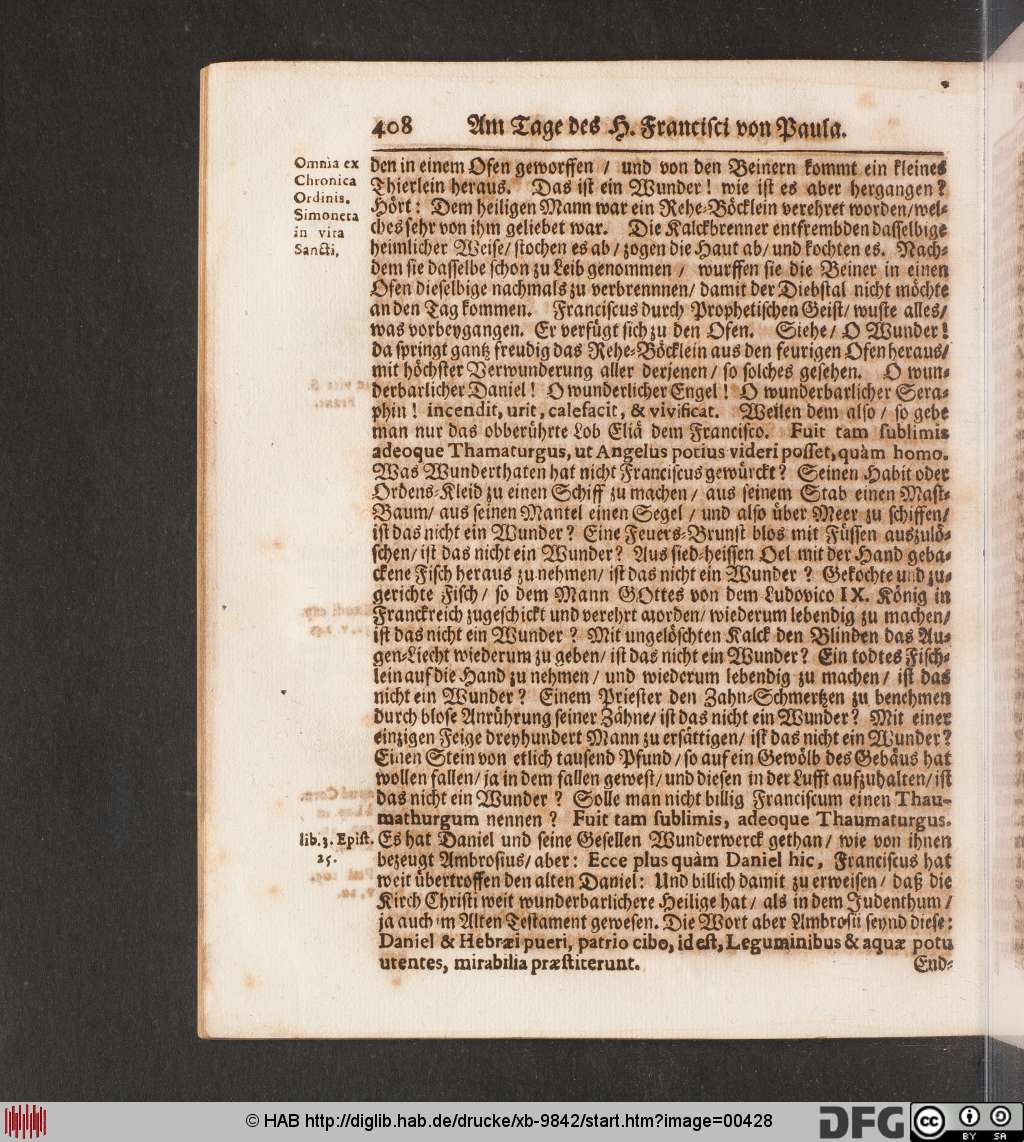 408 Am Tage des H. Francisci von Paula.
Omnia ex
Chronica
Ordinis.
Simoneta
in vita
Sancti,
den in einem Ofen geworffen / und von den Beinern kommt ein kleines
Thierlein heraus. Das ist ein Wunder! wie ist es aber hergangen?
Hört: Dem heiligen Mann war ein Rehe-Böcklein verehret worden/wel-
ches sehr von ihm geliebet war. Die Kalckbrenner entfrembden dasselbige
heimlicher Weise/ stochen es ab/ zogen die Haut ab/ und kochten es. Nach-
dem sie dasselbe schon zu Leib genommen / wurffen sie die Beiner in einen
Ofen dieselbige nachmals zu verbrennnen/ damit der Diebstal nicht möchte
an den Tag kommen. Franciscus durch Prophetischen Geist/ wuste alles/
was vorbeygangen. Er verfügt sich zu den Ofen. Siehe/ O Wunder!
da springt gantz freudig das Rehe-Böcklein aus den feurigen Ofen heraus/
mit höchster Verwunderung aller derjenen/ so solches gesehen. O wun-
derbarlicher Daniel! O wunderlicher Engel! O wunderbarlicher Sera-
phin! incendit, urit, calefacit, & vivificat. Weilen dem also / so gebe
man nur das obberührte Lob Eliä dem Francisco. Fuit tam sublimis
adeoque Thamaturgus, ut Angelus potius videri posset, quàm homo.
Was Wunderthaten hat nicht Franciscus gewürckt? Seinen Habit oder
Ordens-Kleid zu einen Schiff zu machen / aus seinem Stab einen Mast-
Baum/ aus seinen Mantel einen Segel / und also über Meer zu schiffen/
ist das nicht ein Wunder? Eine Feuers-Brunst blos mit Füssen auszulö-
schen/ ist das nicht ein Wunder? Aus sied-heissen Oel mit der Hand geba-
ckene Fisch heraus zu nehmen/ ist das nicht ein Wunder? Gekochte und zu-
gerichte Fisch/ so dem Mann GOttes von dem Ludovico IX. König in
Franckreich zugeschickt und verehrt worden/ wiederum lebendig zu machen/
ist das nicht ein Wunder? Mit ungelöschten Kalck den Blinden das Au-
gen-Liecht wiederum zu geben/ ist das nicht ein Wunder? Ein todtes Fisch-
lein auf die Hand zu nehmen / und wiederum lebendig zu machen / ist das
nicht ein Wunder? Einem Priester den Zahn-Schmertzen zu benehmen
durch blose Anrührung seiner Zähne/ ist das nicht ein Wunder? Mit einer
einzigen Feige dreyhundert Mann zu ersättigen/ ist das nicht ein Wunder?
Einen Stein von etlich tausend Pfund / so auf ein Gewölb des Gebäus hat
wollen fallen/ ja in dem fallen gewest/ und diesen in der Lufft aufzuhalten/ ist
das nicht ein Wunder? Solle man nicht billig Franciscum einen Thau-
mathurgum nennen? Fuit tam sublimis, adeoque Thaumaturgus.
lib. 3. Epist.
25.
Es hat Daniel und seine Gesellen Wunderwerck gethan/ wie von ihnen
bezeugt Ambrosius/ aber: Ecce plus quàm Daniel hic, Franciscus hat
weit übertroffen den alten Daniel: Und billich damit zu erweisen / daß die
Kirch Christi weit wunderbarlichere Heilige hat / als in dem Judenthum /
ja auch im Alten Testament gewesen. Die Wort aber Ambrosii seynd diese:
Daniel & Hebræi pueri, patrio cibo, id est, Leguminibus & aquæ potu
utentes, mirabilia præstiterunt.
End-
© HAB http://diglib.hab.de/drucke/xb-9842/start.htm?image=00428
DFG
cc
BY SA